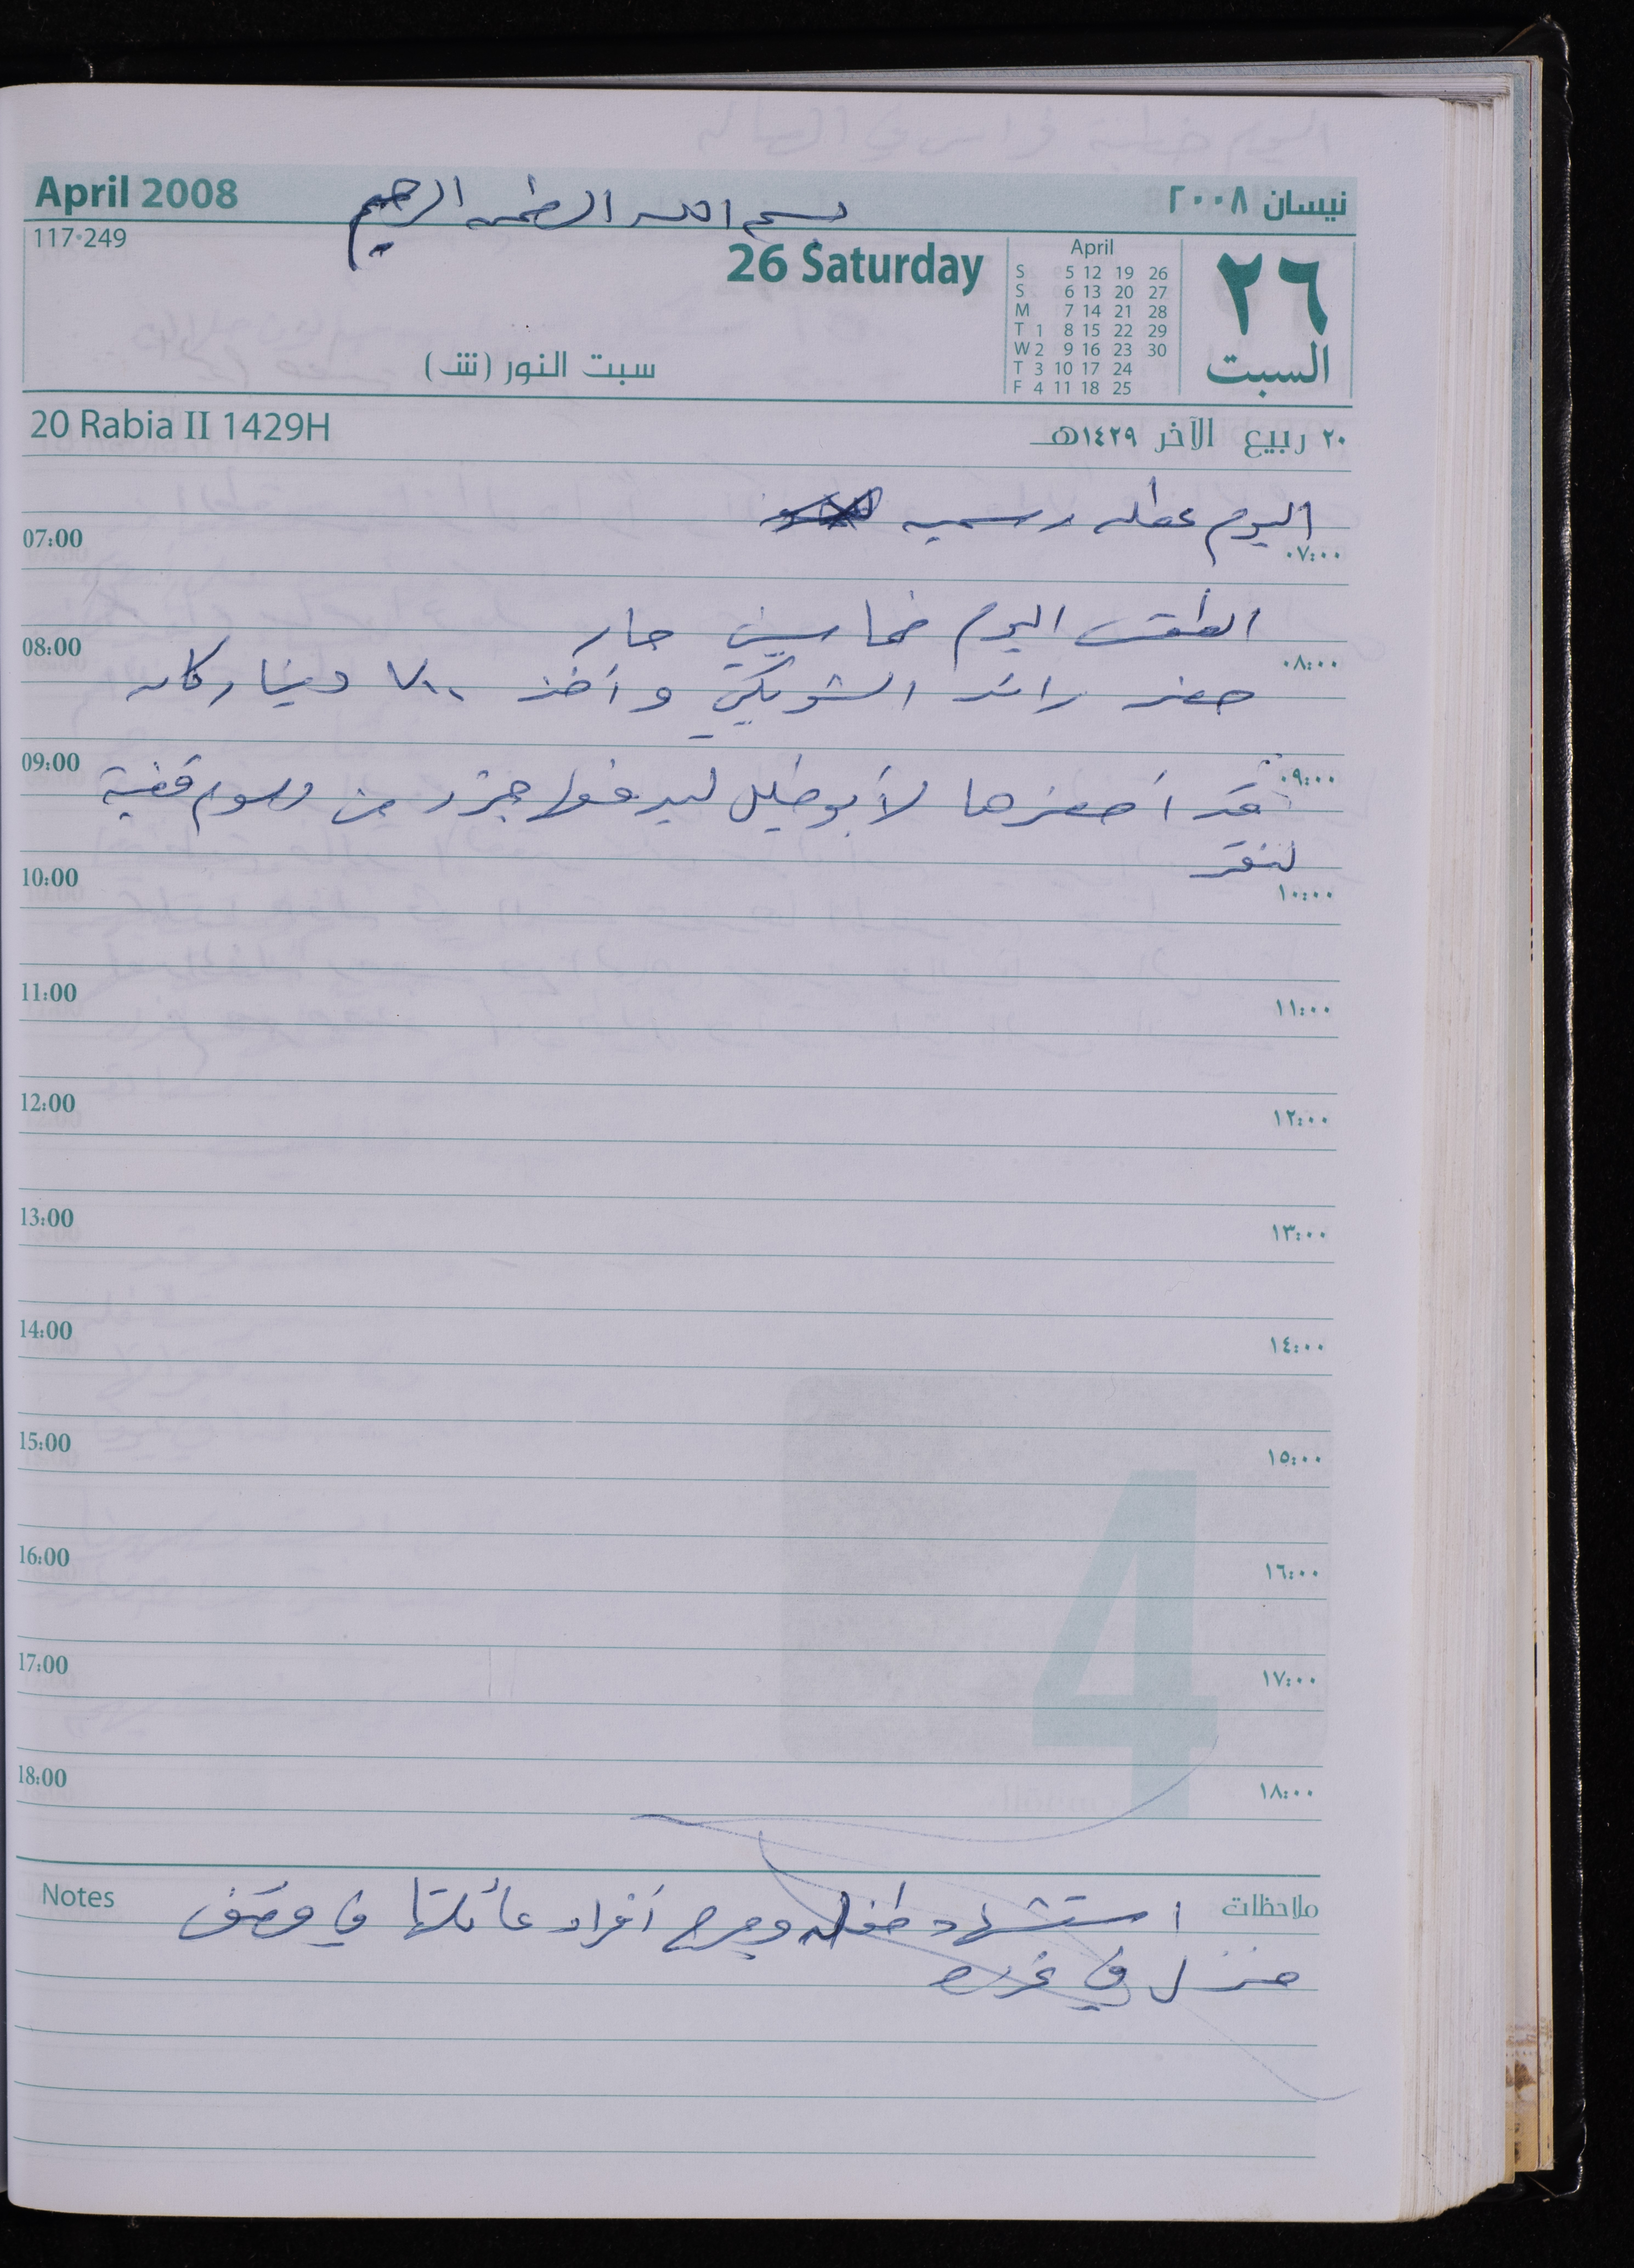 April 2008
نيسان ٢٠٠٨
بسم الله الرحمن الرحيم
117-249
26 Saturday
April
S 5 12 19 26
S 6 13 20 27
M 7 14 21 28
T 1 8 15 22 29
W 2 9 16 23 30
T 3 10 17 24
F 4 11 18 25
٢٦
السبت
سبت النور (ش)
20 Rabia II 1429H
٢٠ ربيع الآخر ١٤٢٩هـ
اليوم عطله رسميه
07:00 ٠٧:٠٠
الطقس اليوم خماسيني حار
08:00 ٠٨:٠٠
حضر رائد الشويكي وأخذ ٧٠٠ دينار كان
09:00 ٠٩:٠٠
قد أحضرها لأبو خليل ليدفعها جزء من رسوم قضية
10:00 ١٠:٠٠
11:00 ١١:٠٠
12:00 ١٢:٠٠
13:00 ١٣:٠٠
14:00 ١٤:٠٠
15:00 ١٥:٠٠
16:00 ١٦:٠٠
17:00 ١٧:٠٠
18:00 ١٨:٠٠
4
Notes ملاحظات
استشهاد طفله وجرح أفراد عائلتها في قصف
منزل في غزه